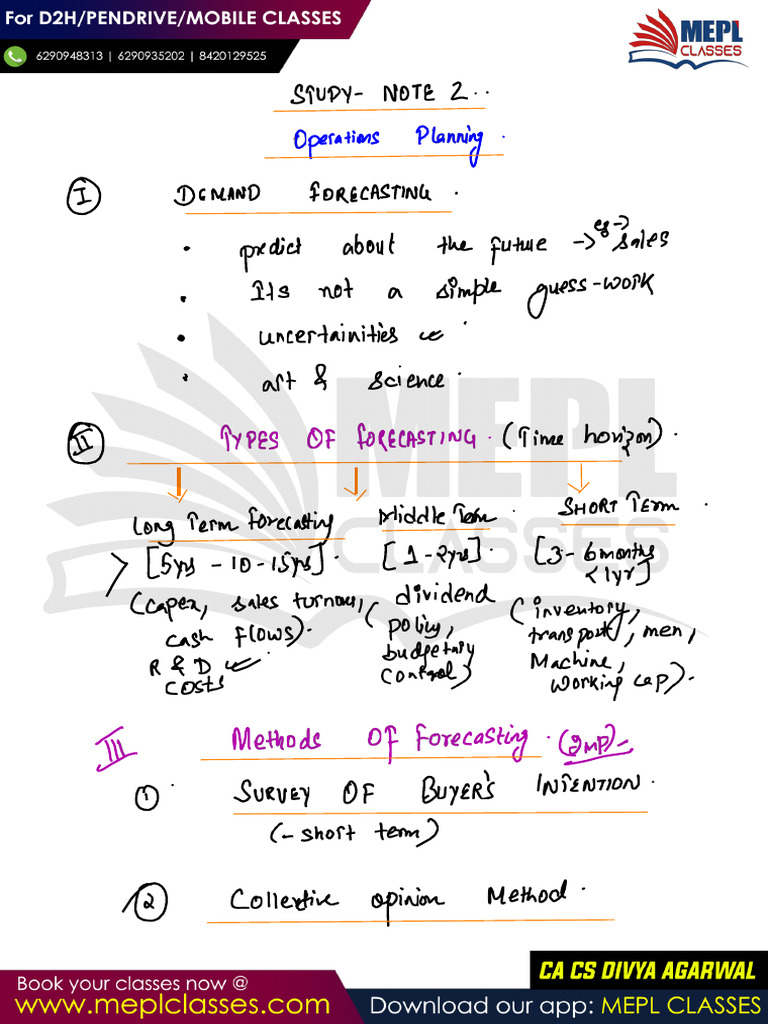 For D2H/PENDRIVE/MOBILE CLASSES
6290948313 | 6290935202 | 8420129525
MEPL
CLASSES
STUDY- NOTE 2..
Operations Planning.
I DEMAND FORECASTING.
• predict about the future -> eg-> sales
• Its not a simple guess-work
• uncertainities
• art & science.
II TYPES OF FORECASTING. (Time horizon).
Long Term Forecasting Middle Term. SHORT TERM.
[5yrs - 10 - 15yrs]. [1 - 2yrs]. [3 - 6 months
< 1yr]
(capex, sales turnover, (dividend (inventory,
cash flows). policy, transport, men,
R & D budgetary Machine,
costs control) working cap).
III Methods Of Forecasting. (Imp)-
1. SURVEY OF BUYER'S INTENTION.
(- short term)
2 Collective opinion Method.
MEPL
CLASSES
CA CS DIVYA AGARWAL
Book your classes now @
www.meplclasses.com
Download our app: MEPL CLASSES